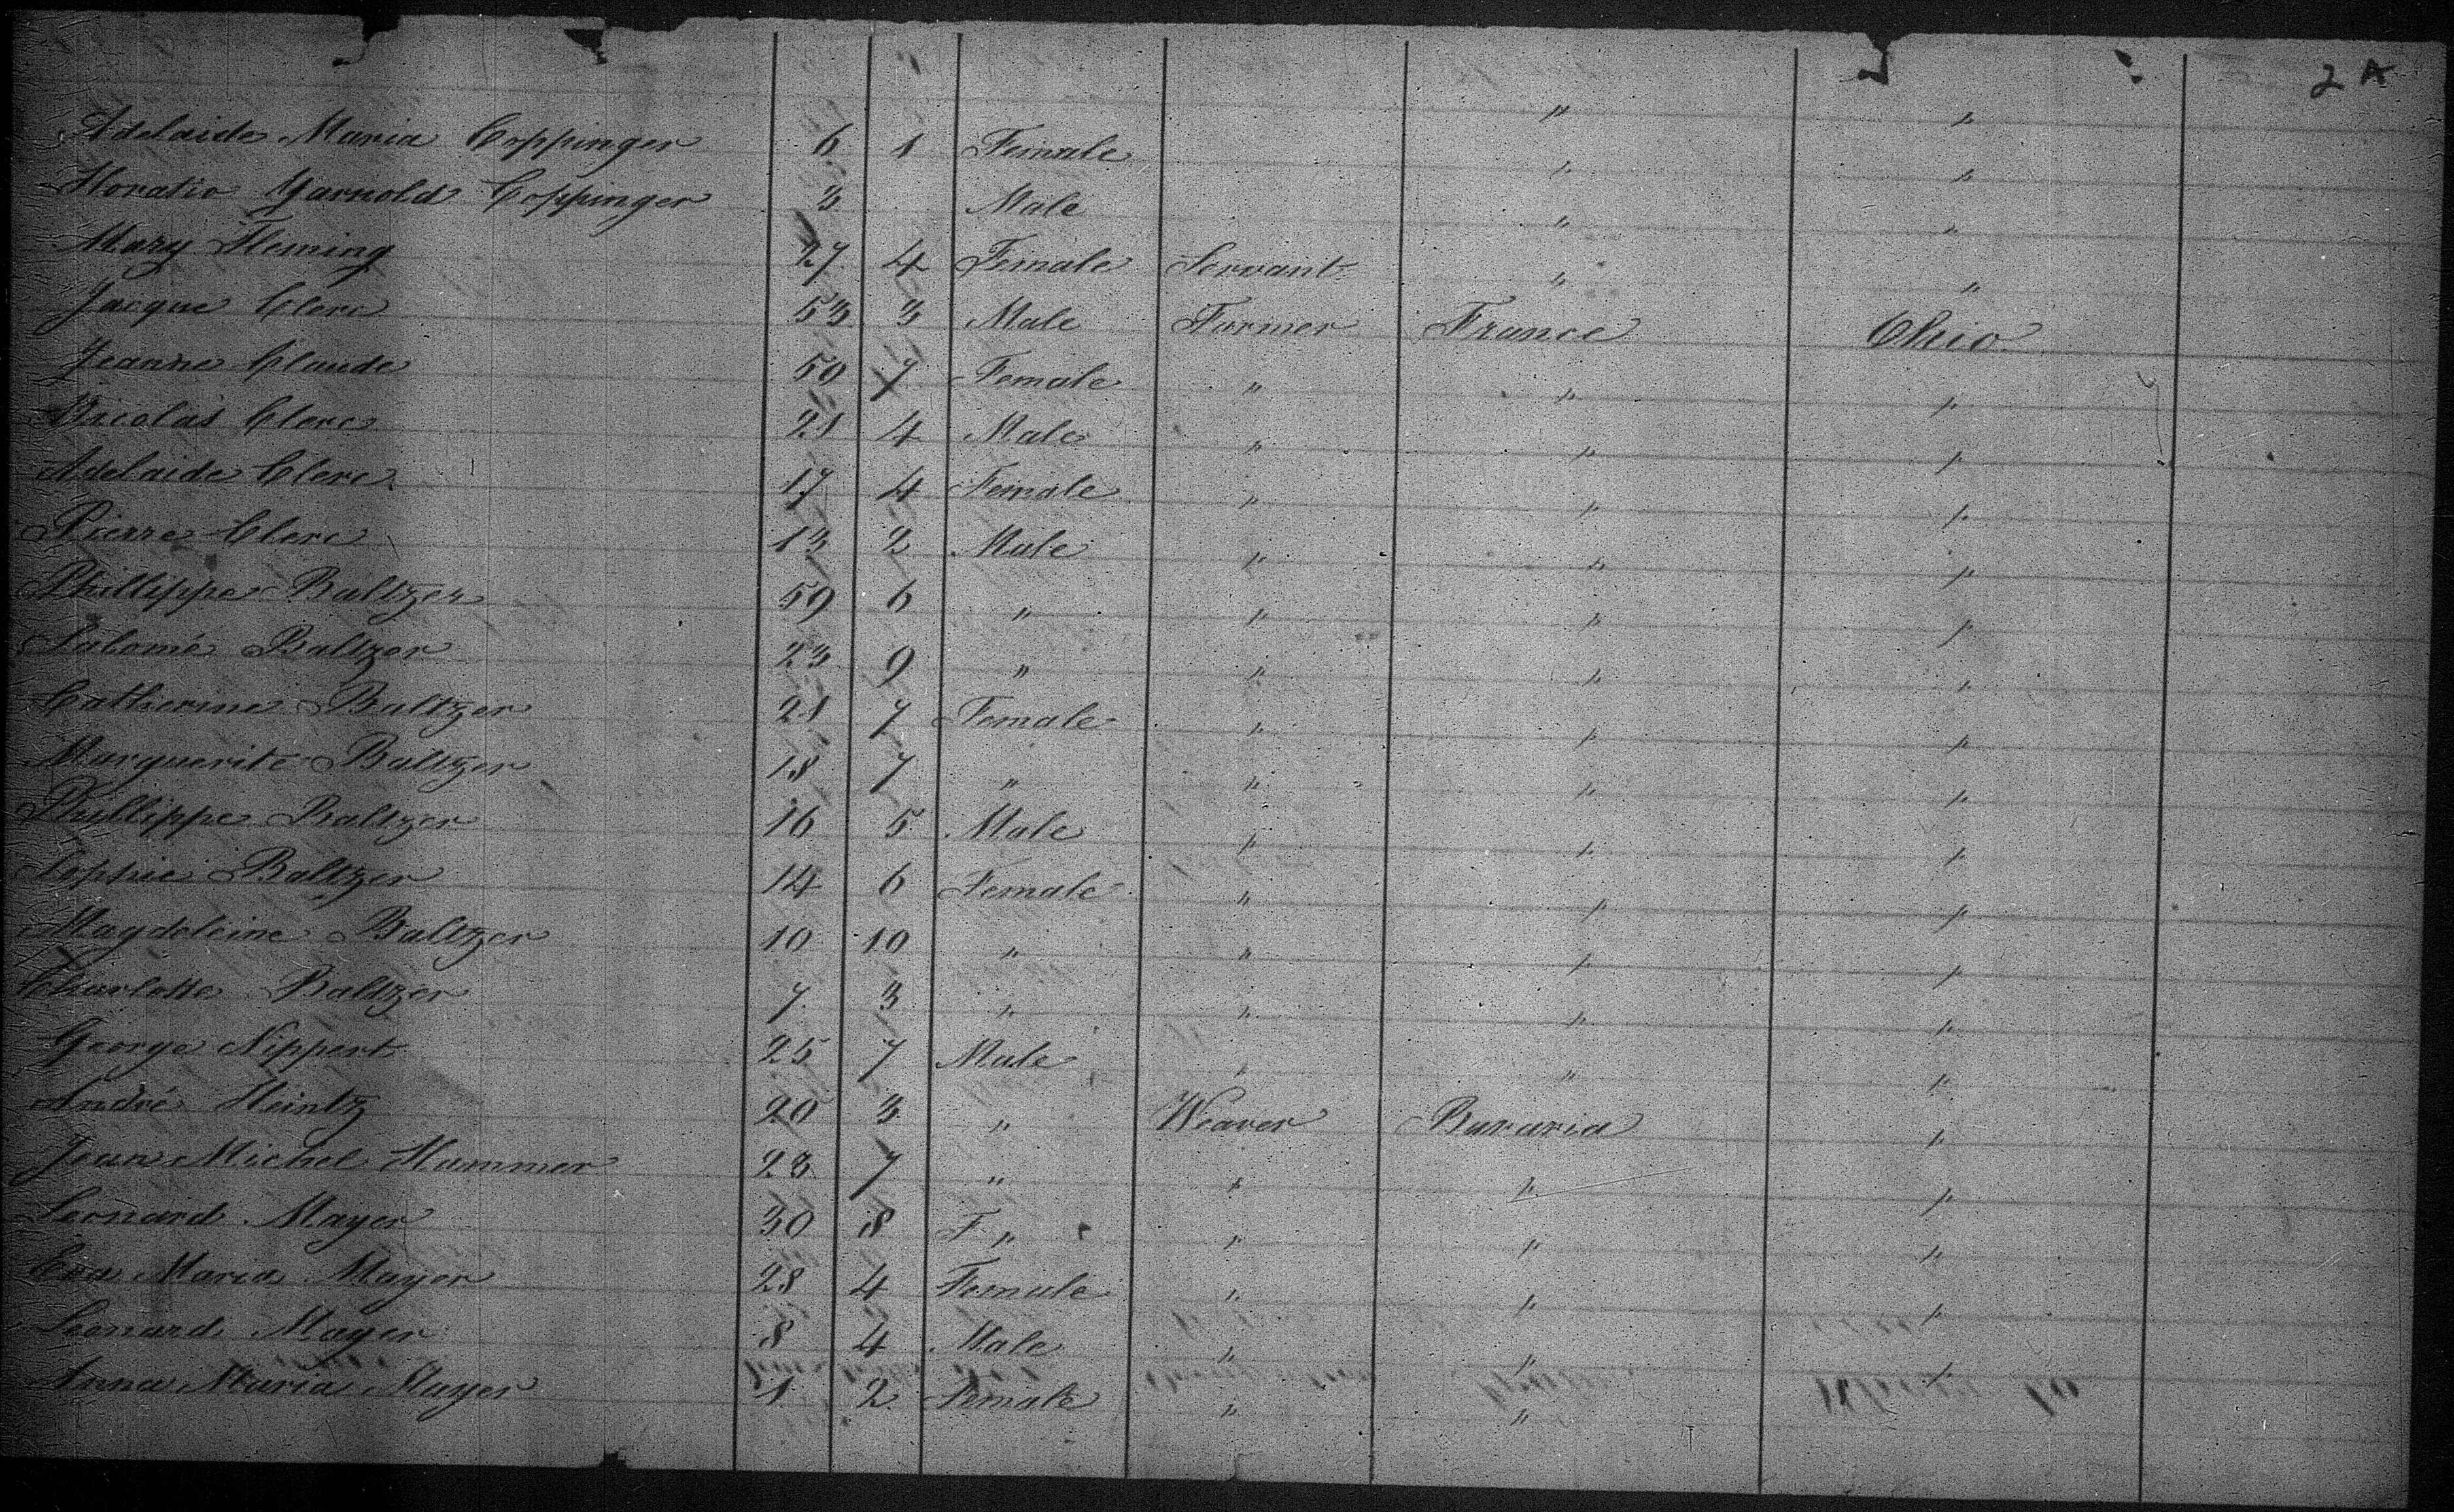 2 A
" "
Adelaide Maria Coppinger 6 1 Female " "
Horatio Yarnold Coppinger 3 Male " "
Mary Fleming 27 4 Female Servant " "
Jacque Clerc 53 3 Male Farmer France Ohio
Jeanne Claude 50 7 Female " " "
Nicolas Clerc 21 4 Male " " "
Adelaide Clerc 17 4 Female " " "
Pierre Clerc 13 2 Male " " "
Phillippe Baltzer 59 6 " " " "
Salomé Baltzer 23 9 " " " "
Catherine Baltzer 21 7 Female " " "
Marguerite Baltzer 18 7 " " " "
Phillippe Baltzer 16 5 Male " " "
Sophie Baltzer 14 6 Female " " "
Magdeleine Baltzer 10 10 " " " "
Charlotte Baltzer 7 3 " " " "
George Nippert 25 7 Male " " "
André Heintz 20 3 " Weaver Bavaria "
Jean Michel Hammer 23 7 " " " "
Leonard Mayer 30 8 F " " " "
Eva Maria Mayer 28 4 Female " " "
Leonard Mayer 8 4 Male " " "
Anna Maria Mayer 1 2 Female " "